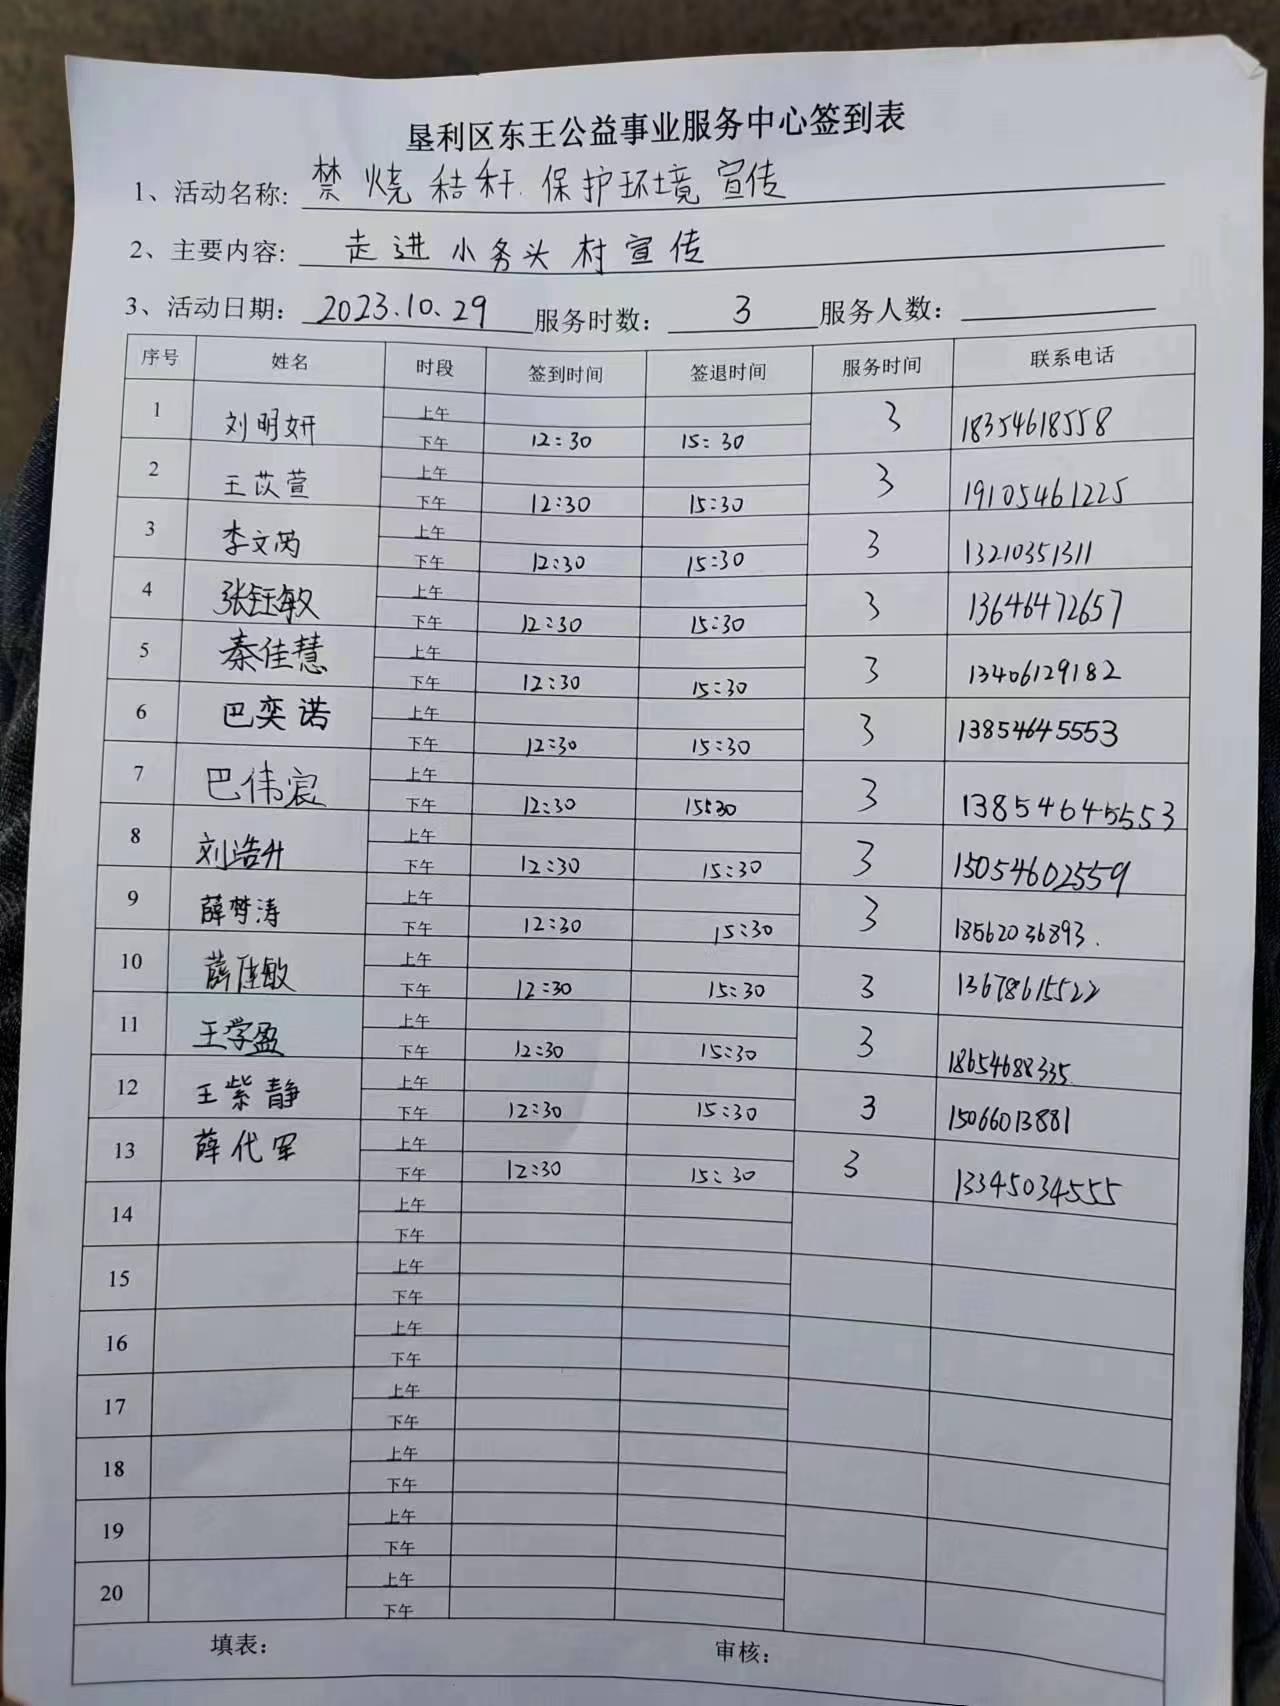 垦利区东王公益事业服务中心签到表
1、活动名称: 禁烧秸秆.保护环境宣传
2、主要内容: 走进小务头村宣传
3、活动日期: 2023.10.29 服务时数: 3 服务人数:
序号 姓名 时段 签到时间 签退时间 服务时间 联系电话
1 刘明妍 上午 3 18354618558
下午 12:30 15:30
2 王苡萱 上午 3 19105461225
下午 12:30 15:30
3 李文芮 上午 3 13210351311
下午 12:30 15:30
4 张钰敏 上午 3 13646472657
下午 12:30 15:30
5 秦佳慧 上午 3 13406129182
下午 12:30 15:30
6 巴奕诺 上午 3 13854645553
下午 12:30 15:30
7 巴伟宸 上午 3 13854645553
下午 12:30 15:30
8 刘浩升 上午 3 15054602559
下午 12:30 15:30
9 薛梦涛 上午 3 18562036893.
下午 12:30 15:30
10 薛佳敏 上午 3 13678615522
下午 12:30 15:30
11 王学盈 上午 3 18654688335
下午 12:30 15:30
12 王紫静 上午 3 15066013881
下午 12:30 15:30
13 薛代军 上午 3 13345034555
下午 12:30 15:30
14 上午
下午
15 上午
下午
16 上午
下午
17 上午
下午
18 上午
下午
19 上午
下午
20 上午
下午
填表: 审核: